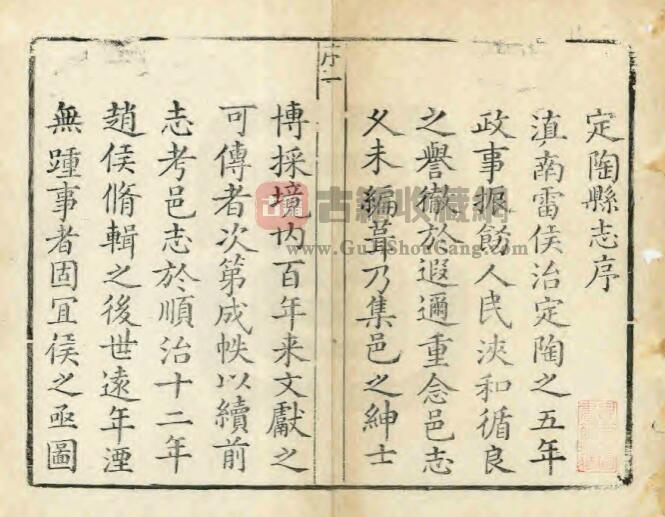 定陶縣志序
滇南雷侯治定陶之五年
政事振飭人民浹和循良
之譽徹於遐邇重念邑志
久未編葺乃集邑之紳士
序一
博採境内百年来文獻之
可傳者次第成帙以續前
志考邑志於順治十二年
趙侯脩輯之後世遠年湮
無踵事者固冝侯之亟圖
古籍收藏网
www.GuJiShouCang.com